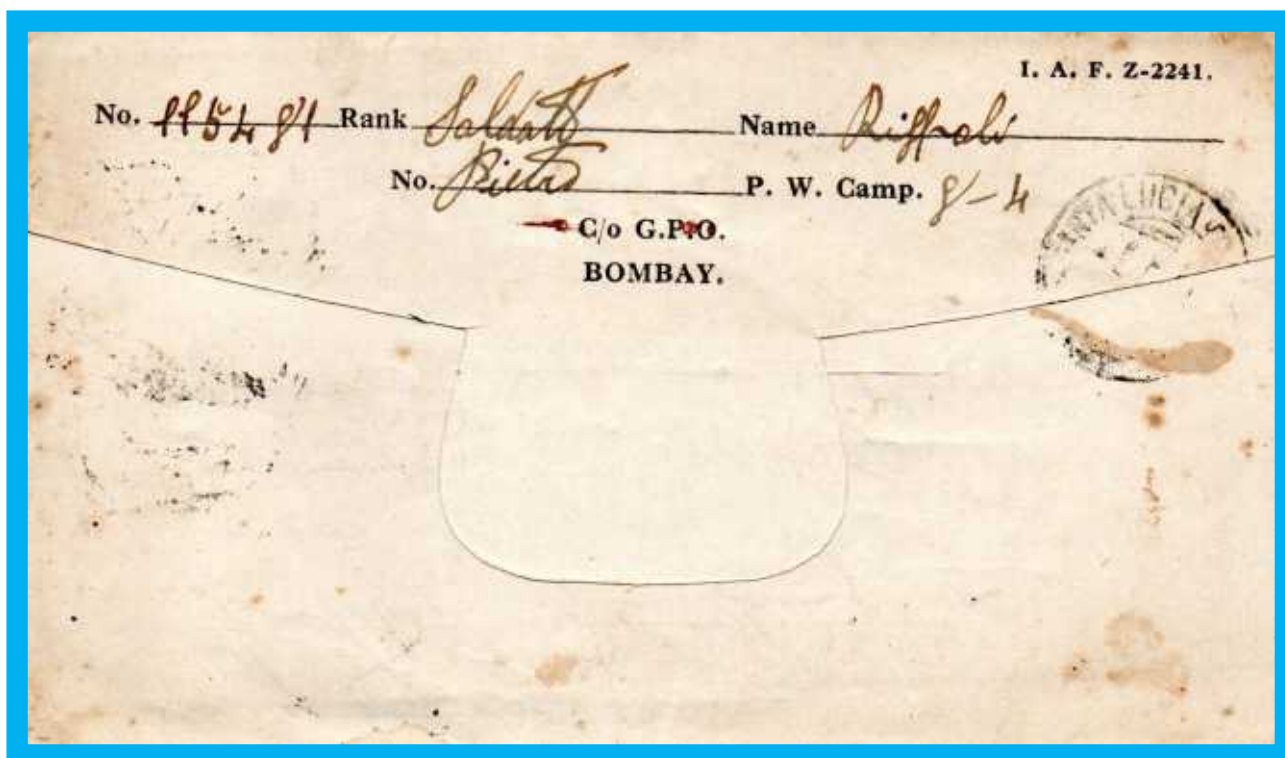 I. A. F. Z-2241.
No. 115481 Rank Soldato Name Rippoli
No. Pietro P. W. Camp. 8-4
C/o G.P.O.
BOMBAY.
SANTA LUCIA